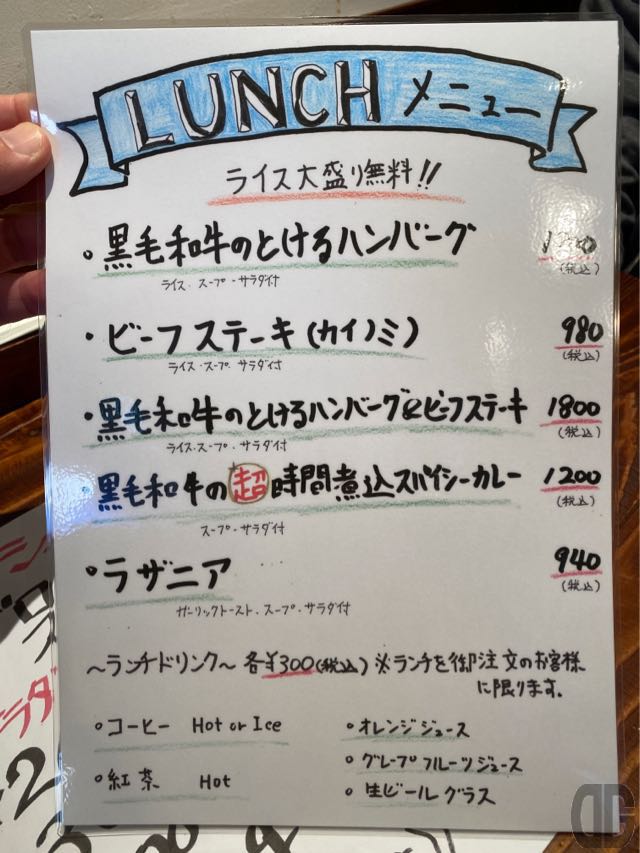 LUNCH メニュー
ライス大盛り無料!!
・黒毛和牛のとけるハンバーグ
(税込)
ライス・スープ・サラダ付
・ビーフステーキ(カイノミ) 980
(税込)
ライス・スープ・サラダ付
・黒毛和牛のとけるハンバーグ&ビーフステーキ 1800
(税込)
ライス・スープ・サラダ付
・黒毛和牛の超時間煮込スパイシーカレー 1200
(税込)
スープ・サラダ付
・ラザニア 940
(税込)
ガーリックトースト・スープ・サラダ付
〜ランチドリンク〜 各¥300(税込) ※ランチを御注文のお客様
に限ります。
・コーヒー Hot or Ice
・紅茶 Hot
・オレンジジュース
・グレープフルーツジュース
・生ビール グラス